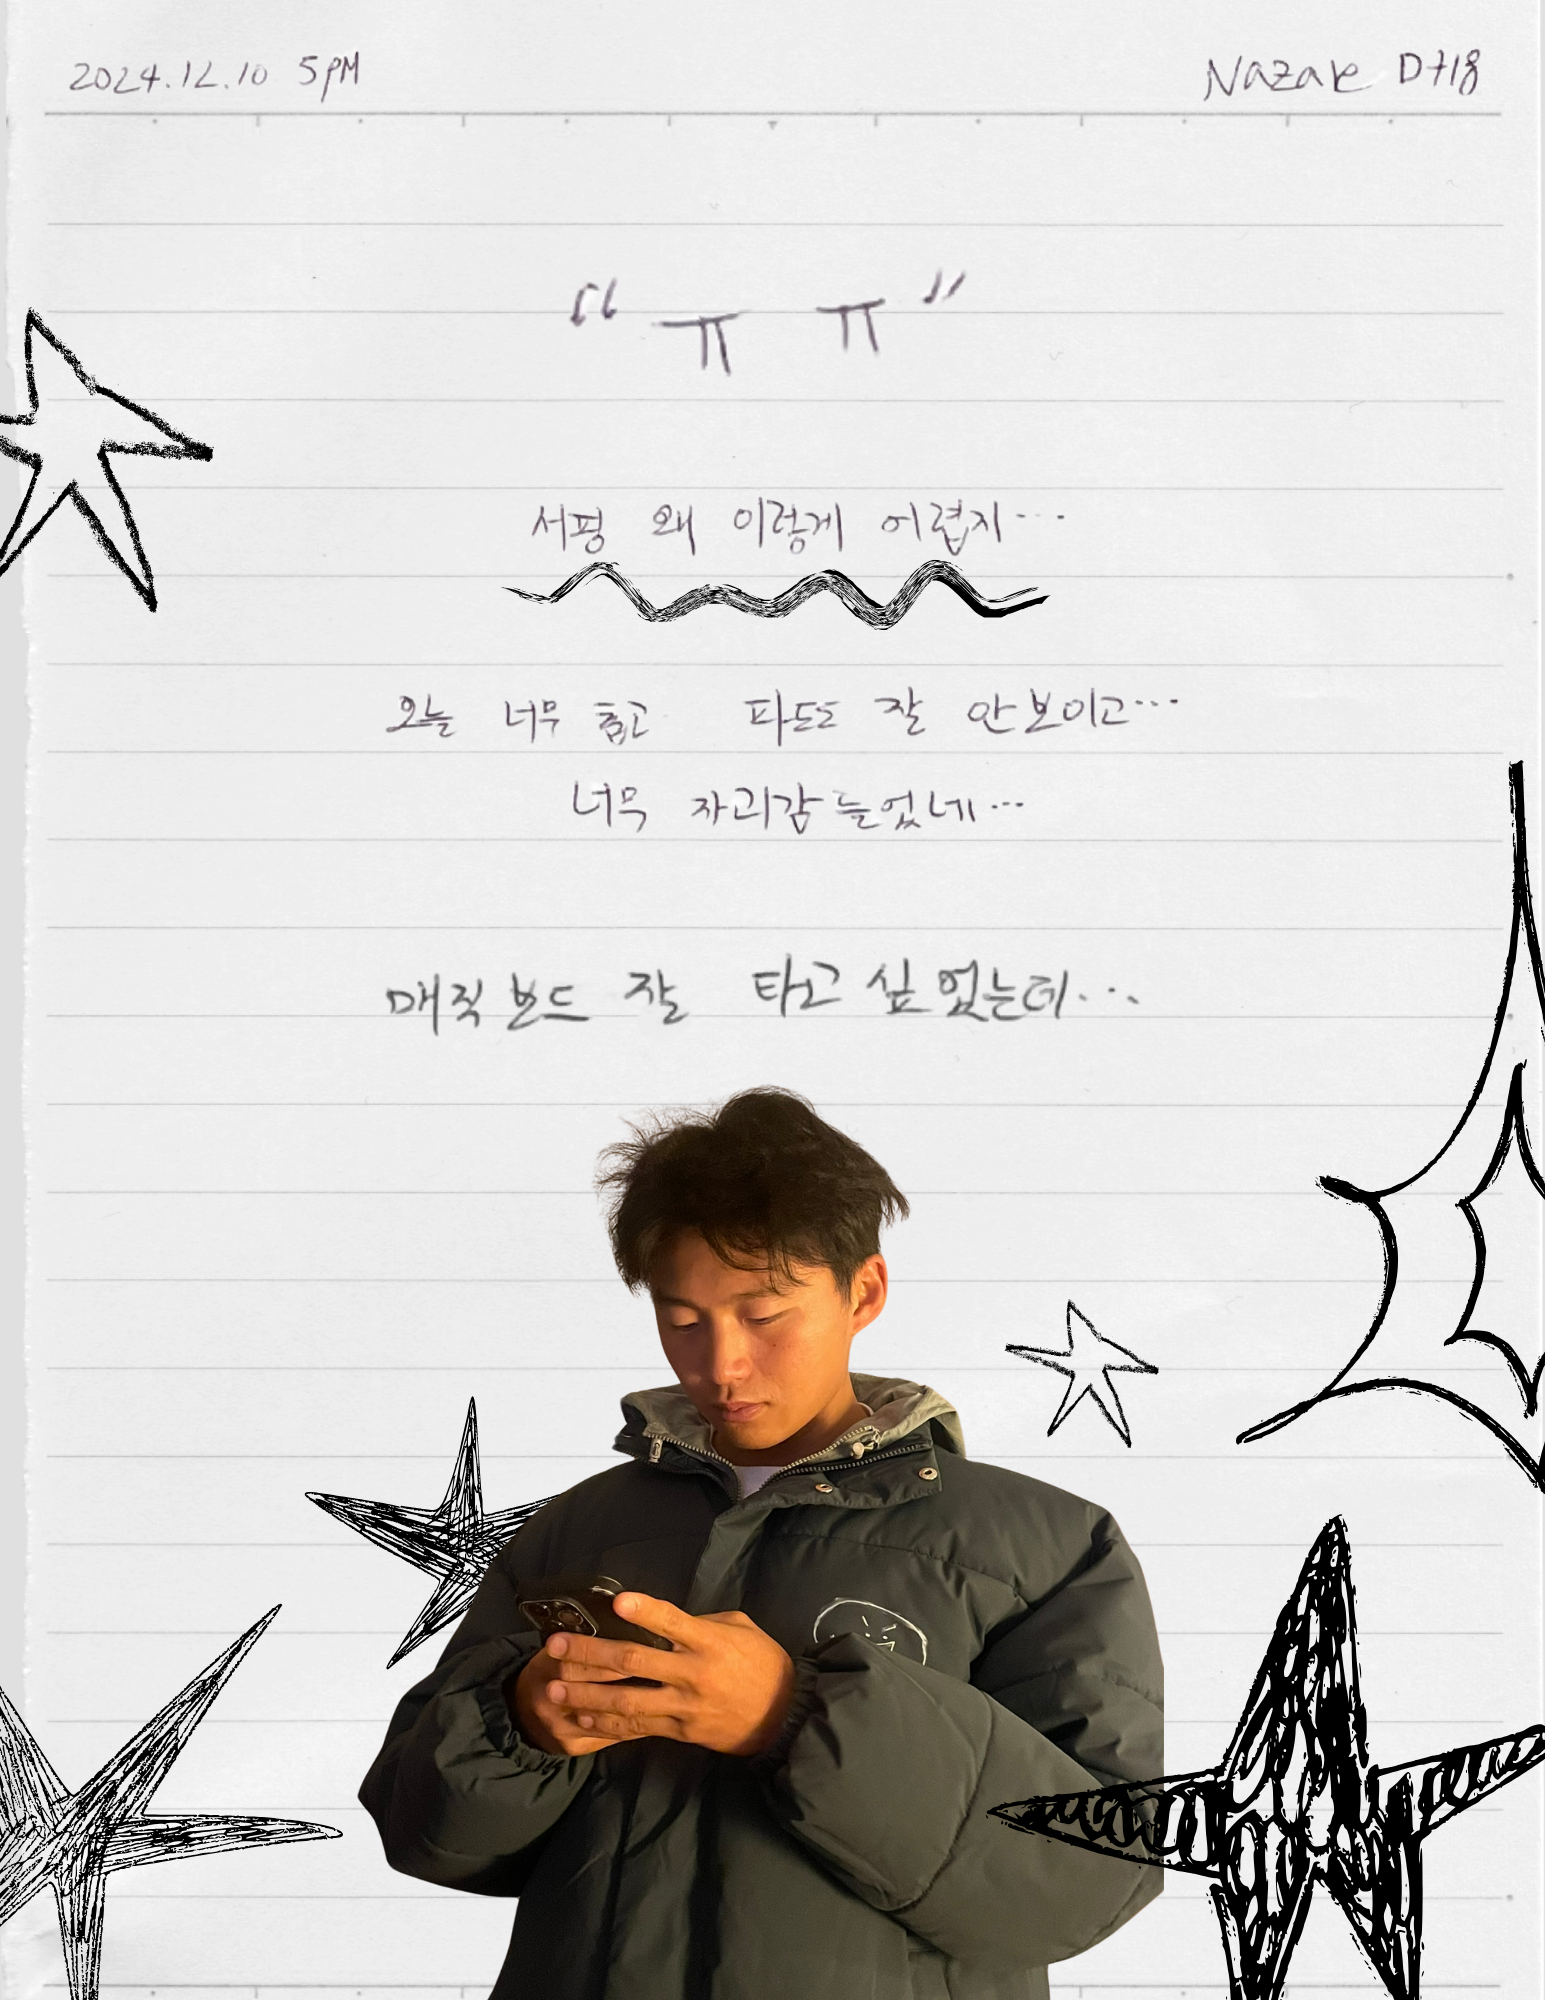 2024.12.10 5PM
Nazare D+18
“ㅠ ㅠ”
서핑 왜 이렇게 어렵지...
오늘 너무 춥고 파도도 잘 안보이고...
너무 자괴감 들었네...
매직보드 잘 타고 싶었는데...